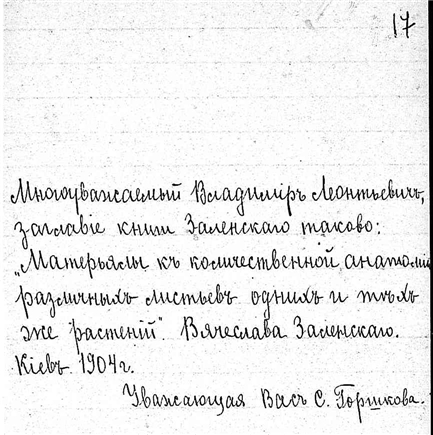 17
Многоуважаемый Владимiръ Леонтьевичъ,
заглавiе книги Заленскаго таково:
„Матерьялы къ количественной анатомiи
различныхъ листьевъ однихъ и тѣхъ
же растенiй". Вячеслава Заленскаго.
Кiевъ. 1904г.
Уважающая Васъ С. Горшкова.